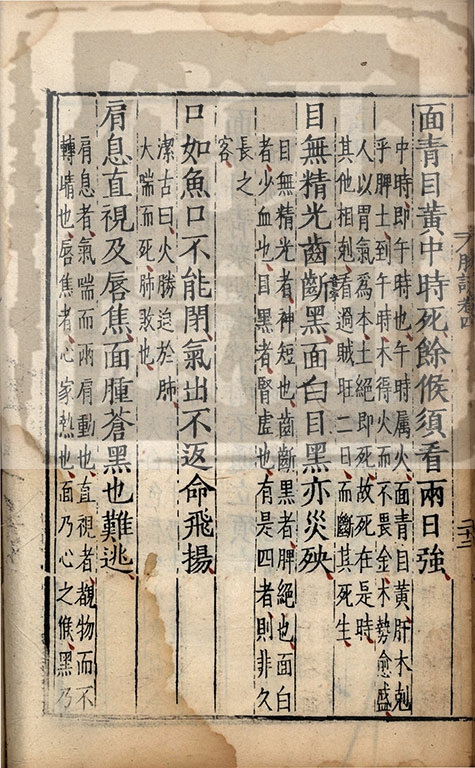 面青目黃中時死餘候須看兩日強
中時即午時也午時属火面青目黃肝木剋
乎脾土到午時木得火而不畏金木勢愈盛
人以胃氣爲本土絕即死故死在是時
其他相剋看過賊旺二日而斷其死生
目無精光齒齗黑面白目黑亦災殃
目無精光者神短也齒齗黑者脾絕也面白
者少血也目黑者腎虚也有是四者則非久
長之
客
口如魚口不能閉氣出不返命飛揚
潔古曰火勝迫於肺
大喘而死肺敗也
肩息直視及唇焦面腫蒼黑也難逃
肩息者氣喘而兩肩動也直視者覩物而不
轉睛也唇焦者心家熱也面乃心之候黑乃
脉訣卷四
二十二